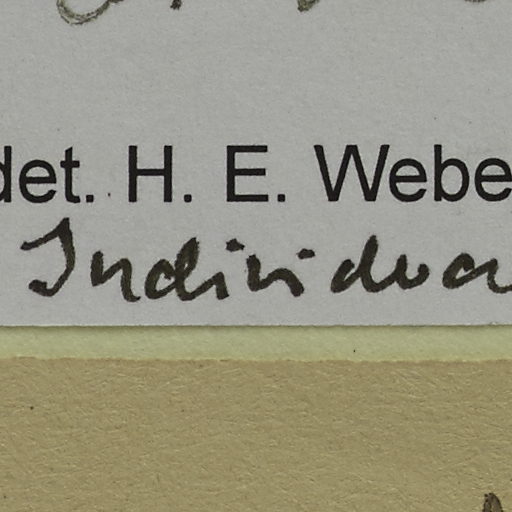 det. H. E. Webe
Individua